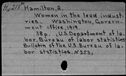 Hamilton, A.
Women in the lead indus-
tries. Washington, Govern-
ment office, 1919.
38p. (U.S. Department of la-
bor. Bureau of labor statistics.
Bulletin of the U.S. bureau of la-
bor statistics, №253)